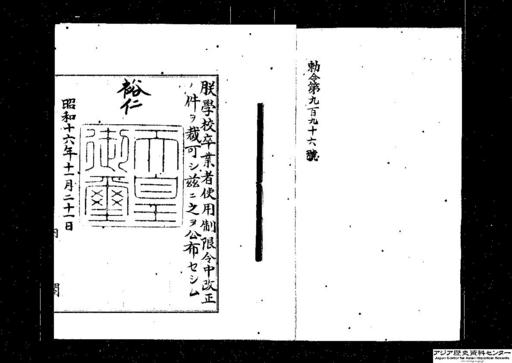 勅令第九百九十六號
朕學校卒業者使用制限令中改正
ノ件ヲ裁可シ茲ニ之ヲ公布セシム
裕仁
天皇御璽
昭和十六年十一月二十一日
内閣
アジア歴史資料センター
Japan Center for Asian Historical Records